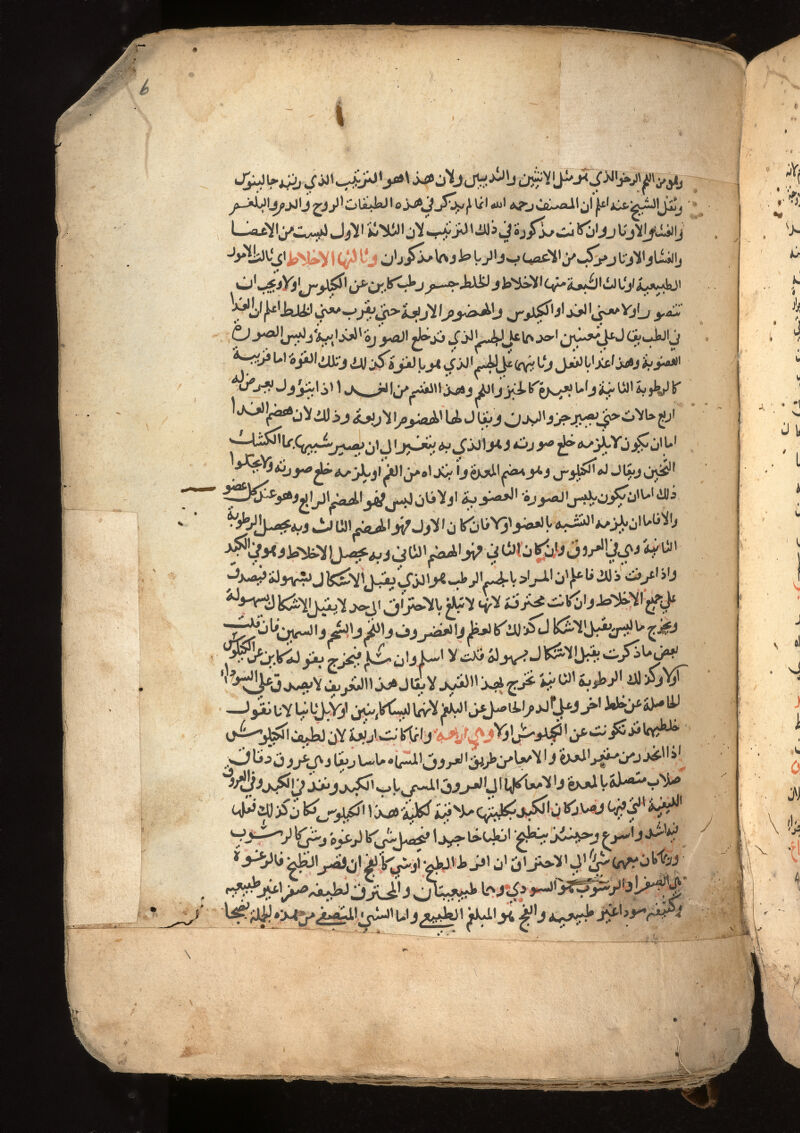 6
وهو من اللحم الرخو الذي هو مثل الانثيين والثديين ولان هذا هو الترتيب الذي رتبه جالينوس
ونقل الشيخ عنه اعلم ان المصنف رحمه الله انما لم يذكر في هذه الطبقات الروح والدم والبلغم
والغشاو الاوتار وان كانت مذكورة في ذلك الترتيب لان الثلاثة الاول ليست من الاعضا
والغشاو الاوتار مركب من الاعصاب والرباط وهما مذكوران وثالثها الاخلاط اي ثالث الامور
الطبيعية او ثالث السبعة منها الاخلاط والخلط جسم رطب كاين عن الكيلوس اولا ويجب ان
تتصور اولا معنى الغدا والكيلوس والهضوم الاربعة حتى يقرب معنى الخلط اعلم ان الغدا
في الطب يقال على معنيين احدهما على الجسم الذي قد خلع الصورة الغدايية ولبس الصورة
العضوية وهذا غدا بالفعل وثانيهما على الجسم الذي هو بالقوة كذلك وتلك القوة اما قريبة
كالرطوبة الثانية واما بعيدة كالخبز واللحم وهذا القسم من الغدا اذا تنوول يعرض له
اربع حالات حتى يصير جزو البدن ويقال لها الهضوم الاربعة وذلك لان هضم الغدا
اما ان يكون لا يلزمه خلع صورته وهو الذي به يتغير الى ان يصير شبيها بما الكشك
الثخين ويقال له الكيلوس وهو هضم المعدة وابتداه من الفم او يلزمه خلع صورته ولا يخلوا
ذلك اما ان يكون يلبس الصورة العضوية اولا فان لبس فهو الهضم الرابع وهو عند كل عضو
والا فاما ان يلزمه التشبه بالعضو اولا فان كان الاول فهو الهضم الثالث وبه يحصل الرطوبة
الثانية وهي في العروق وان كان الثاني فهو الهضم الثاني وبه يحصل الاخلاط وهو في الكبد
واذا عرفت ذلك فاعلم ان المراد بالجسم الرطب هو الذي يقبل الاشكال بسهولة فيصدق
على جميع الاخلاط وان كانت محترقة لانها لا تبلغ بالاحتراق الى حد لا يقبل الاشكال بسهولة
ويخرج ما ليس يقبل الاشكال كذلك كالعظم والغضروف واللحم والشحم والسمين فان قلت
بعض ما ذكرت يقبل الاشكال بسهولة قلت لا اسلم وان سلم فيخرج بقوله كاين عن الكيلوس
اولا وكذلك الرطوبة الثانية تخرج بهذا القيد لا يقال هذا التعريف لا يصدق على السودا
الحاصلة عن خلط اخر وعلى الدم الحاصل عن البلغم لانهما ليسا كاينين اولا بل ثانيا لانا نقول
خلطيهما قد تكونت عن الكيلوس اولا وهي اربعة وانما كانت اربعة لان لطيف الكيلوس
اذا انحدر من مقعر المعدة والامعا من طريق العروق المسماه ماساريقا وهي عروق دقاق
صلاب متصلة بالمعدة والامعا كلها الى العروق المسمى باب الكبد ونفذ في الكبد وفي العروق
الليفية التي فيها وصار كان الكبد بكليتها ملاقية لكلية هذا الكيلوس فكان كذلك فعلها
فيه اشد واسرع وحينئذ ينطبخ انطباخا جيدا فيحصل شي كالرغوة وشي كالرسوب
وربما كان معهما شيء الى الاحتراق ان افرط الطبخ او شي كالفج ان قصر الطبخ فالرغوة
هي الصفرا والرسوب هو السودي وهما طبيعيتان والمحترق لطيفه صفرا غير طبيعيه
وكثيفه سودا غير طبيعيه والفج هو البلغم الطبيعي واما الشيء المتصفى من هذه الجملة نضجا